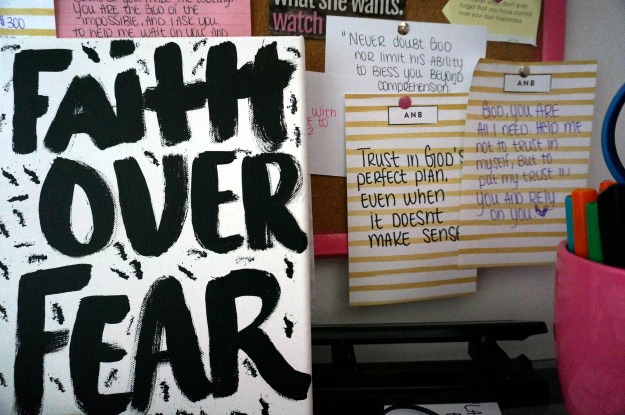 FAITH
OVER
FEAR
300
YOU ARE THE GOD OF THE
IMPOSSIBLE, AND I ASK YOU
TO HELP ME WAIT ON YOU AND
what she wants.
watch
forget that you have control
over your own happiness
"NEVER DOUBT GOD
NOR LIMIT HIS ABILITY
TO BLESS YOU BEYOND
COMPREHENSION."
With
to
2
ANB
TRUST IN GOD'S
PERFECT PLAN,
EVEN WHEN
IT DOESNT
MAKE SENSE
ANB
GOD, YOU ARE
All I NEED. HELP ME
NOT TO TRUST IN
MYSELF, BUT TO
PUT MY TRUST IN
YOU AND RELY
ON YOU